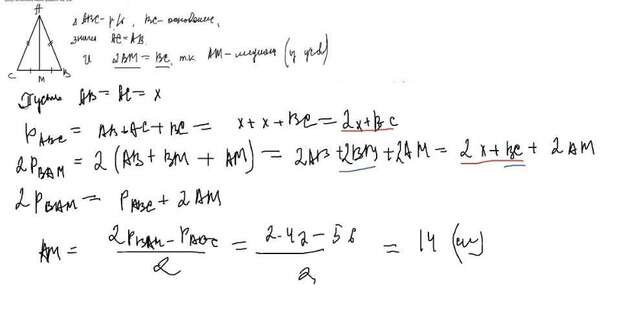 A
C M B
Δ ABC - р/б, BC - основание,
значит AC = AB.
и 2BM = BC, т.к. AM - медиана (из усл)
Пусть AB = AC = x
P ABC = AB + AC + BC = x + x + BC = 2x + BC
2P BAM = 2 (AB + BM + AM) = 2AB + 2BM + 2AM = 2x + BC + 2AM
2P BAM = P ABC + 2AM
AM = 2P BAM - P ABC / 2 = 2·42 - 56 / 2 = 14 (см)